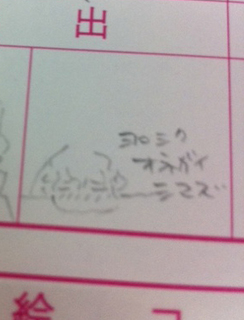 出
ヨロシク
オネガイ
シマス"